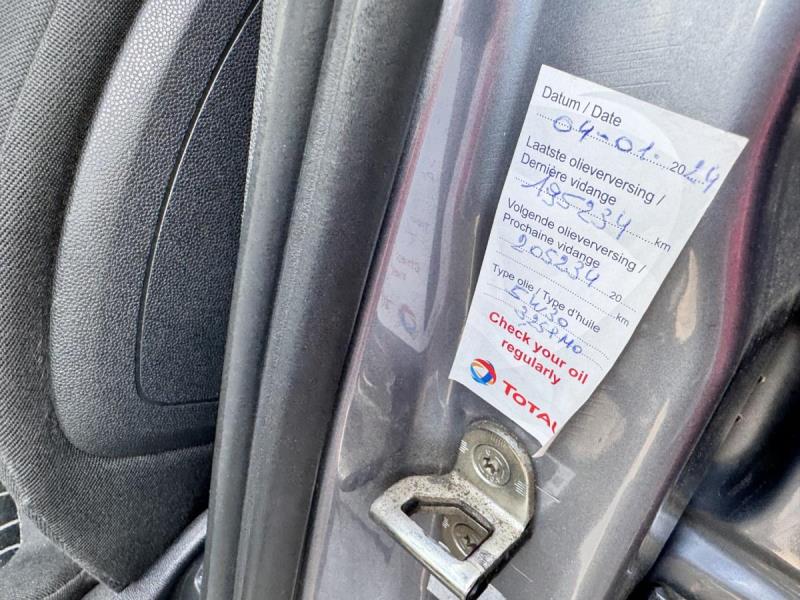 Datum / Date
04-01- 2024
Laatste olieverversing /
Dernière vidange
195234 km
Volgende olieverversing /
Prochaine vidange
205234 20
km
Type olie / Type d'huile
5W30
Check your oil
regularly
TOTAL